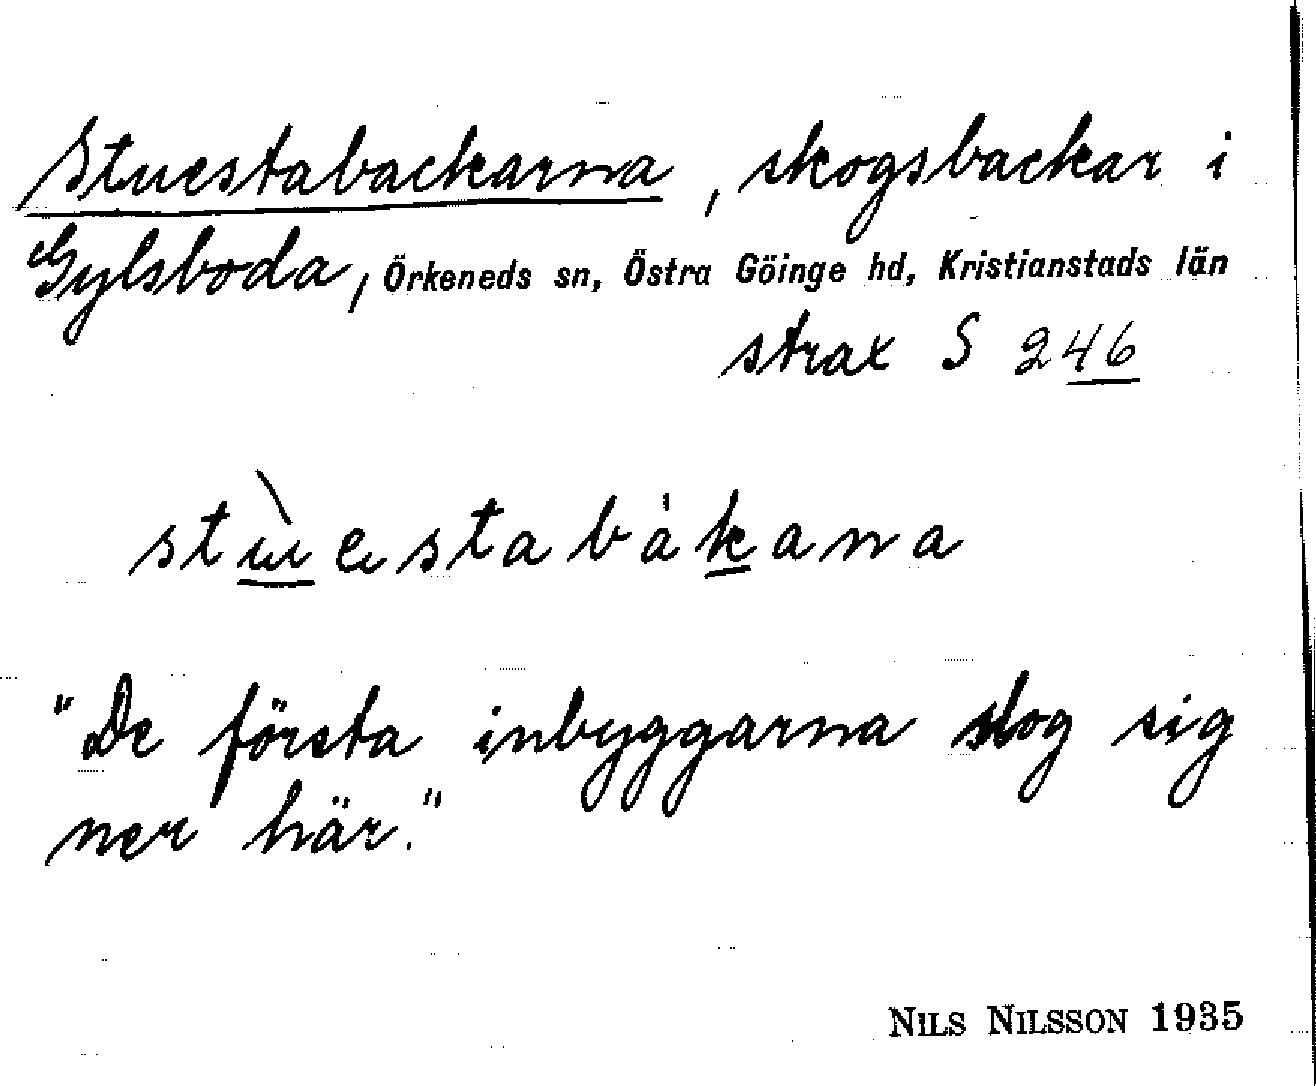 Stuestabackarna, skogsbackar i
Gylsboda, Örkeneds sn, Östra Göinge hd, Kristianstads län
strax S 246
stùestabákana
"De första inbyggarna slog sig
ner här."
NILS NILSSON 1935